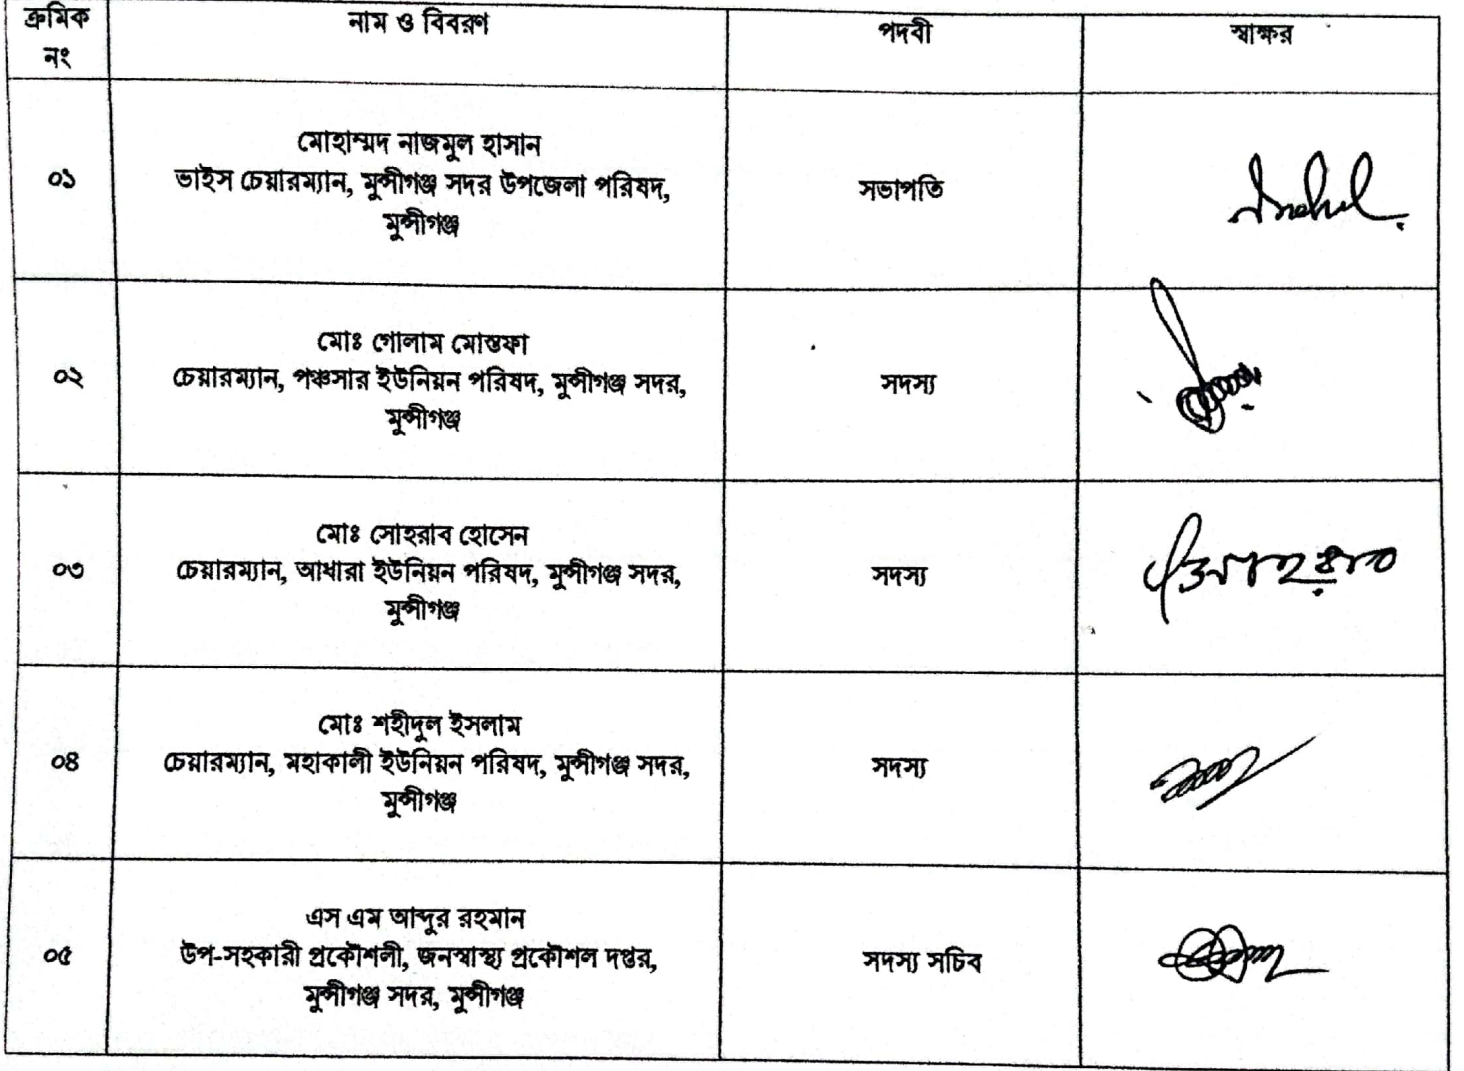 ক্রমিক
নং
নাম ও বিবরণ
পদবী
স্বাক্ষর
০১
মোহাম্মদ নাজমুল হাসান
ভাইস চেয়ারম্যান, মুন্সীগঞ্জ সদর উপজেলা পরিষদ,
মুন্সীগঞ্জ
সভাপতি
০২
মোঃ গোলাম মোস্তফা
চেয়ারম্যান, পঞ্চসার ইউনিয়ন পরিষদ, মুন্সীগঞ্জ সদর,
মুন্সীগঞ্জ
সদস্য
০৩
মোঃ সোহরাব হোসেন
চেয়ারম্যান, আধারা ইউনিয়ন পরিষদ, মুন্সীগঞ্জ সদর,
মুন্সীগঞ্জ
সদস্য
০৪
মোঃ শহীদুল ইসলাম
চেয়ারম্যান, মহাকালী ইউনিয়ন পরিষদ, মুন্সীগঞ্জ সদর,
মুন্সীগঞ্জ
সদস্য
০৫
এস এম আব্দুর রহমান
উপ-সহকারী প্রকৌশলী, জনস্বাস্থ্য প্রকৌশল দপ্তর,
মুন্সীগঞ্জ সদর, মুন্সীগঞ্জ
সদস্য সচিব